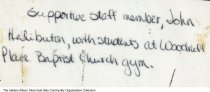 Supportive staff member, John
Haliburton, with students at Woodruff
Place Baptist Church gym.
The Indiana Album: Near East Side Community Organization Collection